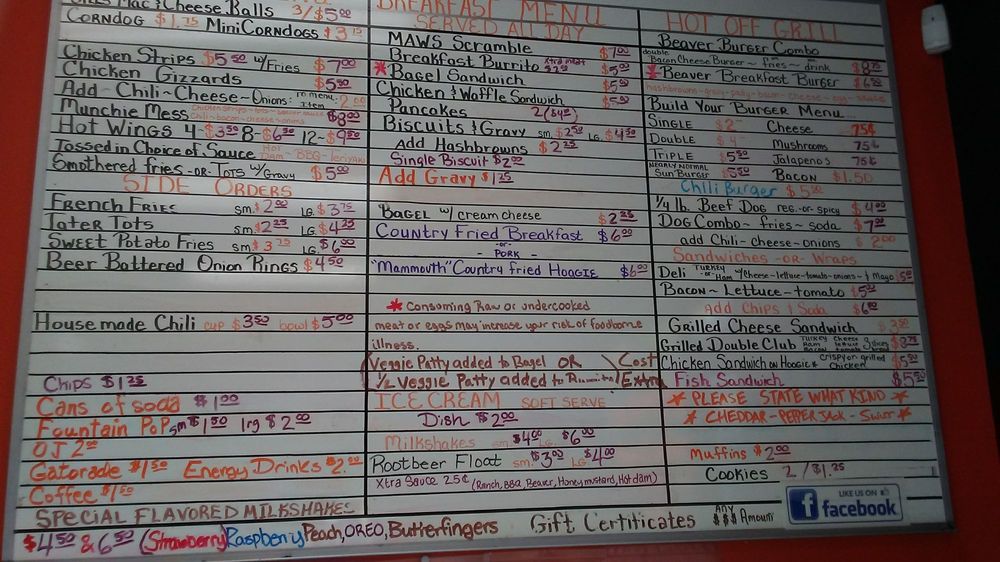 Mac & Cheese Balls 3/$5.00
Corndog $1.75 Mini Corndogs $3.75
Chicken Strips $5.50 w/Fries $7.00
Chicken Gizzards $5.50
Add-Chili-Cheese-Onions: to menu item 2.00
Munchie Mess $8.00
chili-bacon-cheese-onions
Hot Wings 4-$3.50 8-$6.50 12-$9.50
Tossed in Choice of Sauce Hot Dam-BBQ-Teriyaki
Smothered fries-or-Tots w/Gravy $5.00
Side Orders
French Fries sm. $2.00 LG. $3.75
Tater Tots sm. $2.25 LG. $4.25
Sweet Potato Fries sm. $3.75 LG. $6.00
Beer Battered Onion Rings $4.50
House made Chili cup $3.50 bowl $5.00
Chips $1.25
Cans of soda $1.00
Fountain Pop sm $1.50 lrg $2.00
OJ 2.00
Gatorade $1.50 Energy Drinks $2.00
Coffee $1.50
Special Flavored Milkshakes
$4.50 & 6.50 (Strawberry Raspberry Peach, OREO, Butterfingers
Breakfast Menu
Served All Day
MAWS Scramble $7.00
Breakfast Burrito xtra meat $2.50 $5.00
* Bagel Sandwich $5.00
Chicken & Waffle Sandwich $5.50
Pancakes 2($4.00)
Biscuits & Gravy sm. $2.50 LG. $4.50
Add Hashbrowns $2.25
Single Biscuit $2.00
Add Gravy $1.25
"Bagel w/ cream cheese $2.25
Country Fried Breakfast $6.00
-or-
- Pork -
"Mammouth" Country Fried Hoagie $6.00
* Consoming Raw or undercooked
meat or eggs may increase your risk of foodborne
illness.
Veggie Patty added to Bagel OR Cost
1/2 Veggie Patty added to Extra
ICE CREAM soft serve
Dish $2.00
Milkshakes sm. $4.00 LG. $6.00
Rootbeer Float sm. $3.00 LG. $4.00
Xtra Sauce 25¢ (Ranch, BBQ, Beaver, Honey mustard, Hot dam)
Gift Certificates ANY $$$ Amount
Hot Off Grill
Beaver Burger Combo
double Bacon Cheese Burger ~ fries ~ drink $8.75
* Beaver Breakfast Burger $6.50
hashbrowns-gravy-patty-bacon-cheese-egg-sauce
Build Your Burger Menu...
Single $2 Cheese 75¢
Double $4 Mushrooms 75¢
Triple $5.50 Jalapenos 75¢
Nearly Normal Sun Burger $5.50 Bacon $1.50
Chili Burger $5.50
1/4 lb. Beef Dog reg.-or-spicy $4.00
Dog Combo-fries-soda $7.00
add Chili-cheese-onions $2.00
Sandwiches -or- Wraps
Deli Turkey -or- Ham w/cheese-lettuce-tomato-onions-& Mayo 5.50
Bacon~Lettuce-tomato $5.50
Add Chips & Soda $6.00
Grilled Cheese Sandwich $3.50
Grilled Double Club Turkey Ham Bacon Cheese lettuce tomato 3 slices $8.75
Chicken Sandwich on Hoagie* Crispy or grilled Chicken $5.50
Fish Sandwich $5.50
* PLEASE STATE WHAT KIND *
* CHEDDAR - PEPPER JACK - Swiss *
Muffins $2.00
Cookies 2/$1.25
LIKE US ON
facebook